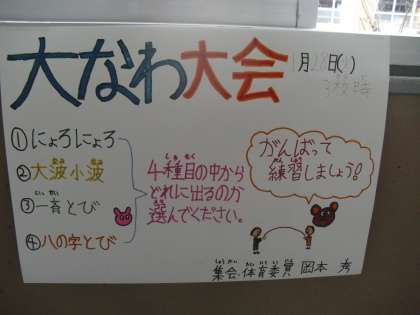 大なわ大会
月28日()
3校時
①にょろにょろ
②大波小波
いっせい
③一斉とび
④八の字とび
しゅもく
4種目の中から
どれに出るのか
えら
選んでください。
がんばって
れんしゅう
練習しましょう!
集会・体育委員 岡本